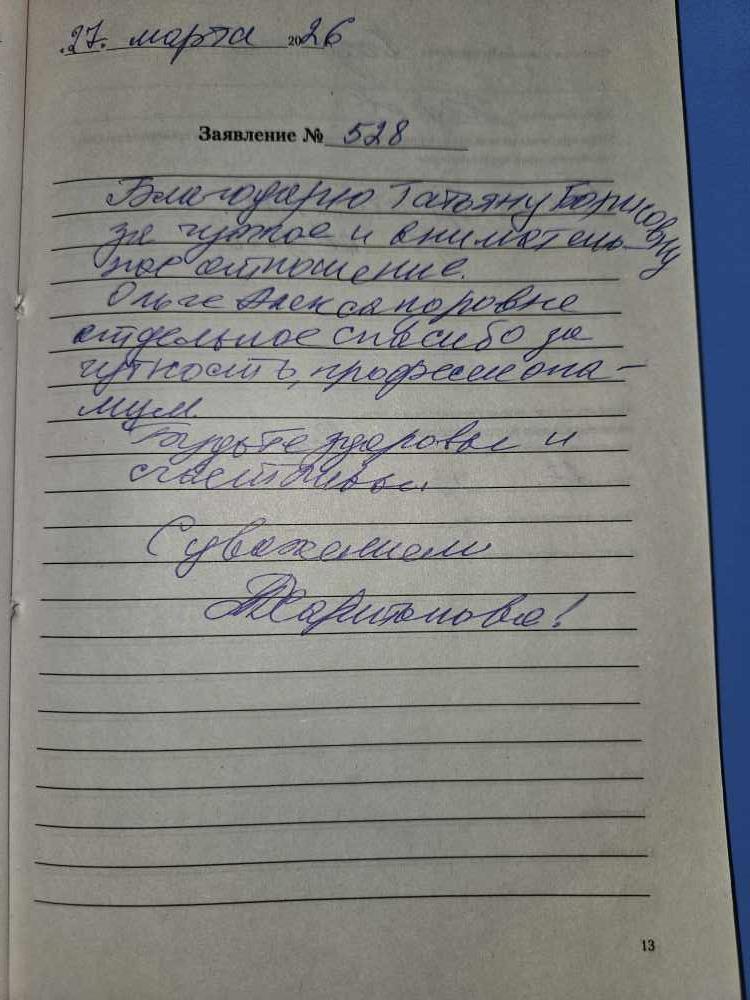 27. марта 2026
Заявление № 528
Благодарю Татьяну Борисовну
за чуткое и вниматель-
ное отношение.
Ольге Александровне
отдельное спасибо за
чуткость, профессиона-
лизм.
Будьте здоровы и
счастливы.
С уважением
Харитонова!
13